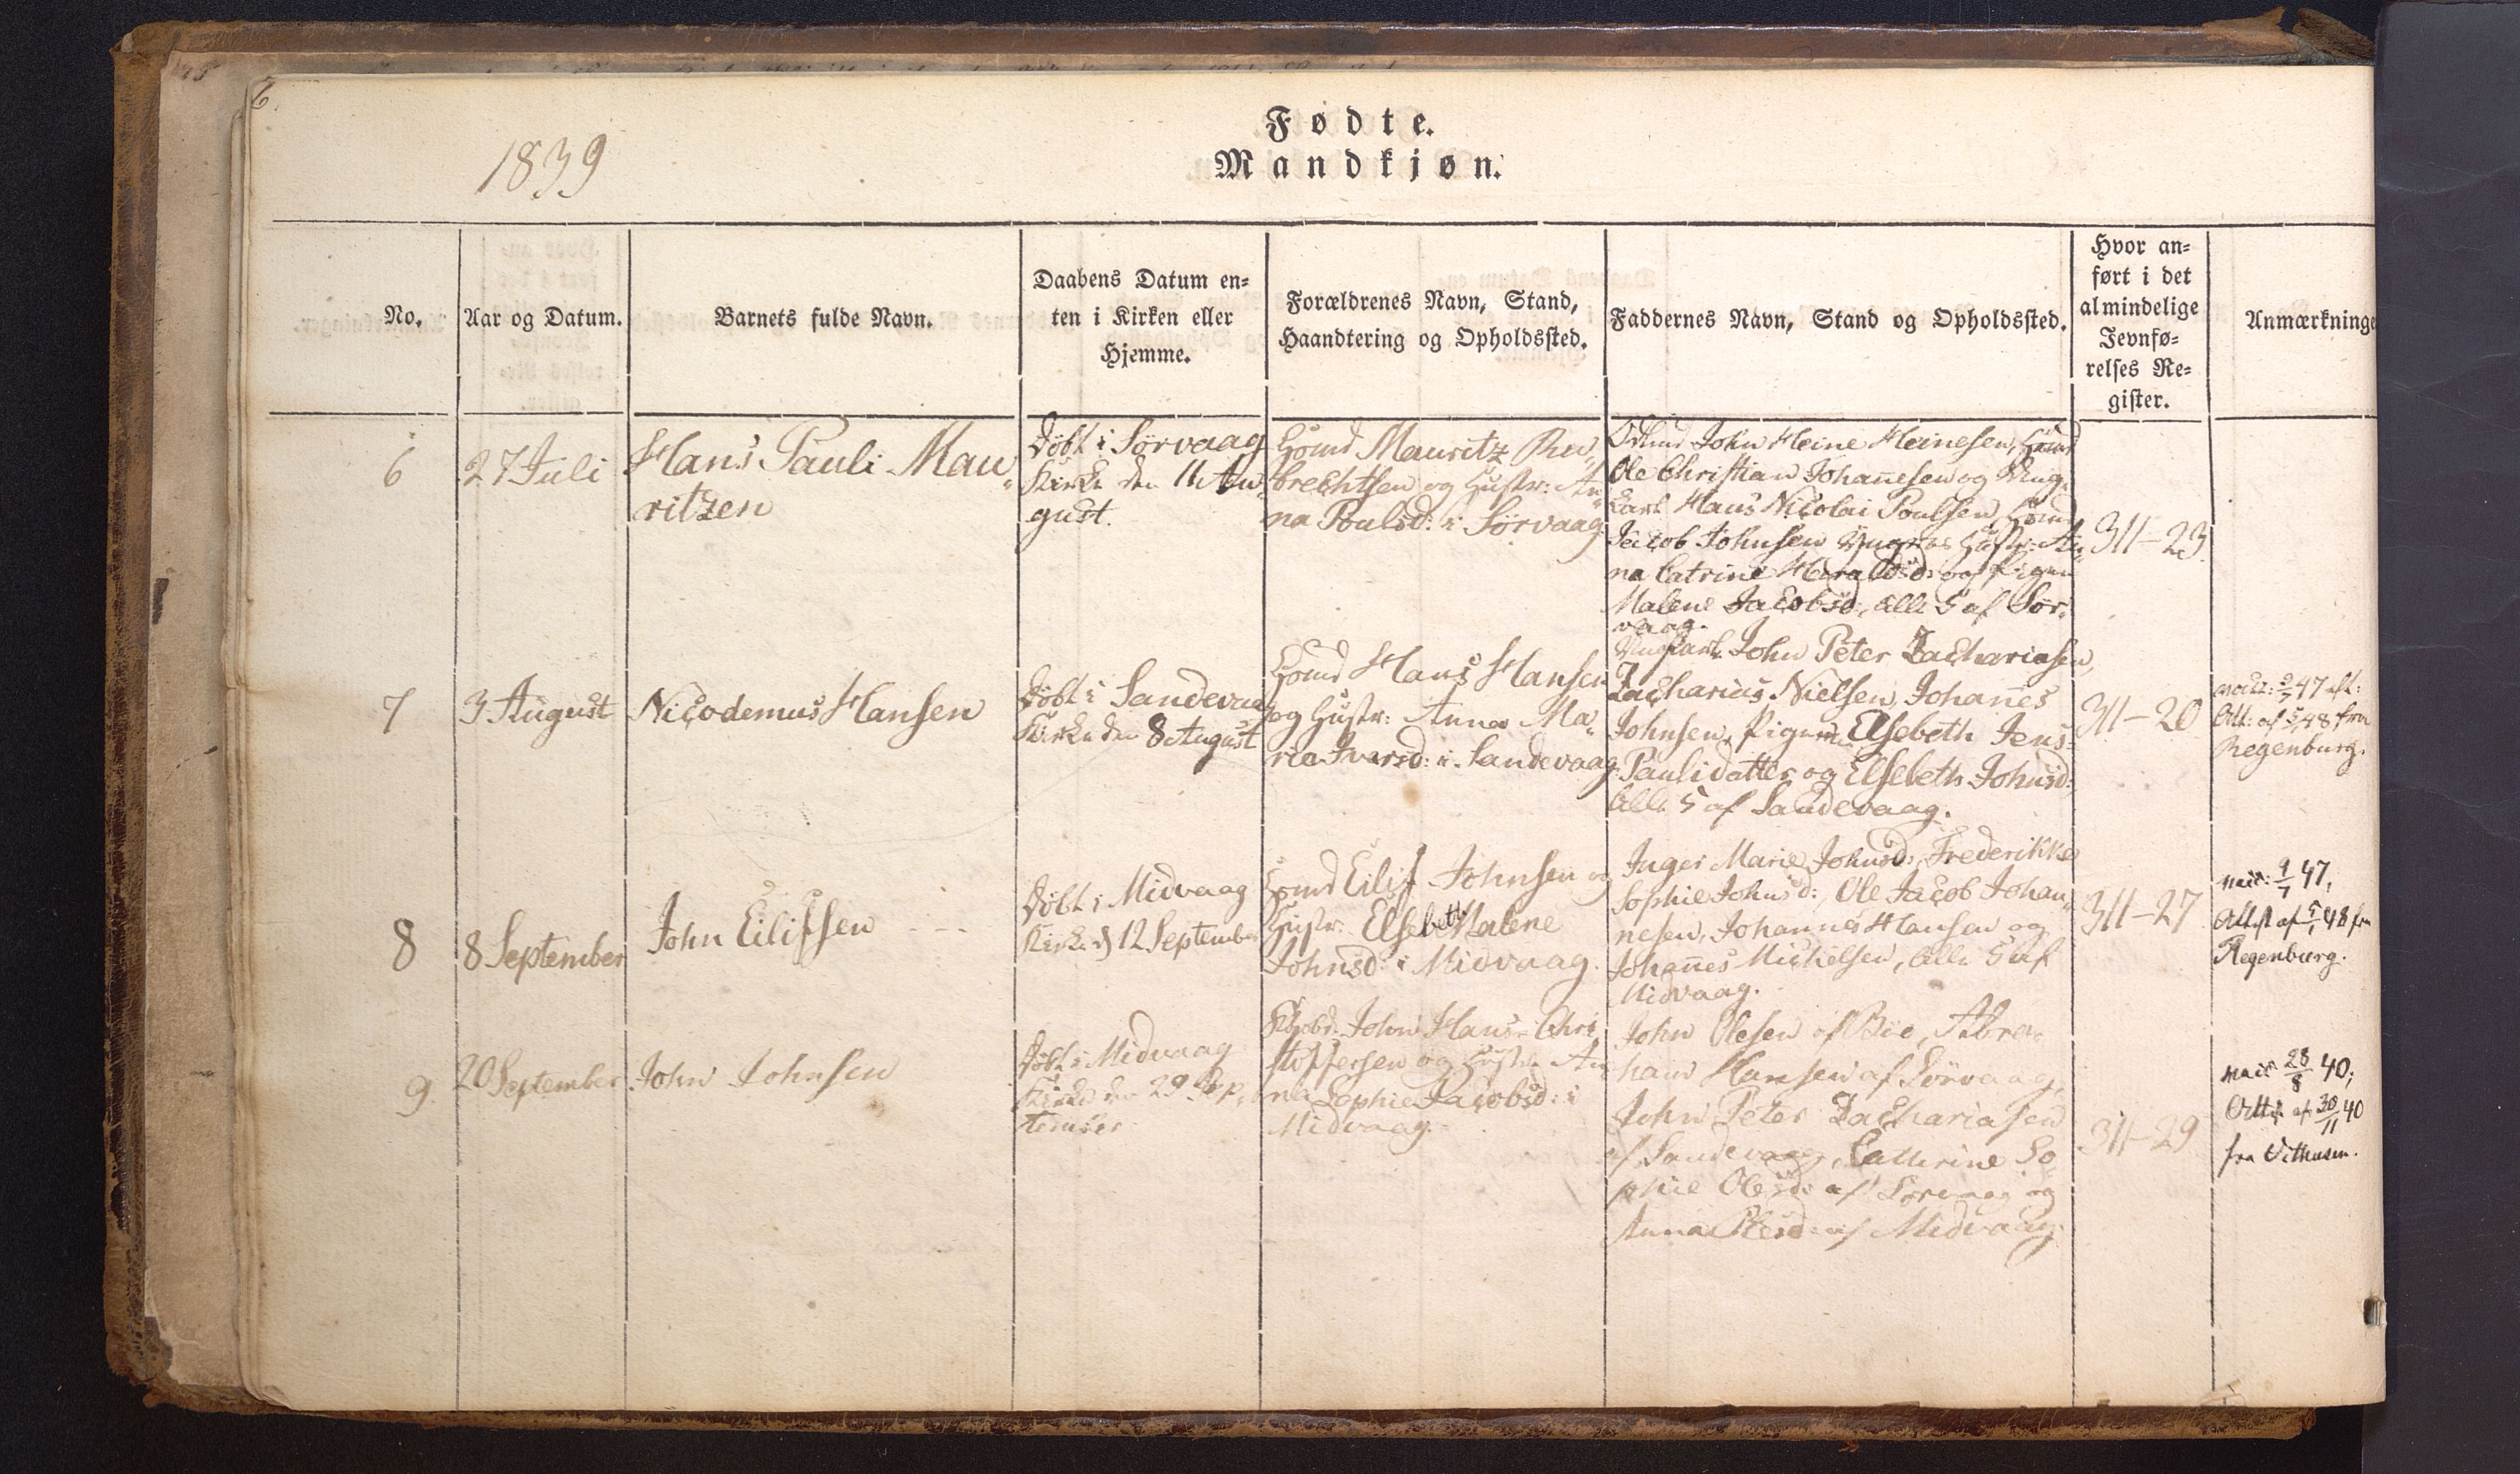 6.
1839
Fødte.
Mandkjøn.
No.
Aar og Datum.
Barnets fulde Navn.
Daabens Datum en-
ten i Kirken eller
Hjemme.
Forældrenes Navn, Stand,
Haandtering og Opholdssted.
Faddernes Navn, Stand og Opholdssted.
Hvor an-
ført i det
almindelige
Jevnfø-
relses Re-
gister.
Anmærkninge
6
27 Juli
Hans Pauli Mau„
ritzen
Døbt i Sörvaag
Kirke den 11 Au„
gust.
Huusmd Mauritz
brechtsen og Hustr: An„
na Poulsd: i Sörvaag.
John Heine Heinesen,
Ole Christian Johan̄esen og Ung„
karl Hans Nicolai Poulsen,
Jacob Johnsen Hustr: An„
na Catrine og Pigen
Malene Jacobsd:, alle 5 af Sör„
vaag.
311-23
7
3 August
Nicodemus Hansen
Döbt i Sandevaag
Kirke den 8 August
Hans Hansen
og Hustr: Anna Ma„
ria Ivarsd: i Sandevaag.
Ungkarl John Peter Zachariasen,
Zacharias Nielsen, Johan̄es
Johnsen, Pigerne Elsebeth Jens„
Paulidatter og Elsebeth Johnsd:
alle 5 af Sandevaag.
311-20
47
Att: af 48 fra
Regenburg.
8
8 September
John Eilifsen
Döbt i Midvaag
Kirke d 12 September
Eilif Johnsen og
Hustr: Elsebeth Malene
Johnsd: i Midvaag.
Inger Marie Johnsd:, Frederikke
Sophie Johnsd:, Ole Jacob Johan„
nesen, Johannes Hansen og
Johan̄es Michelsen, alle 5 af
Midvaag.
311-27
47,
Attest af 48 fra
Regenburg.
9.
20 September
John Johnsen
Döbt i Midvaag
Kirke den 29 Sep„
tember
John Hans Chri
stoffersen og Hustr: An
na Sophie Jacobsd: i
Midvaag.
John Olesen af Bøe, Abra„
ham Hansen af Sörvaag,
John Peter Zachariasen
af Sandevaag, Cathrine So„
phie Olesd: af Sörvaag og
Anna Olesd: af Midvaag.
311-29
28/8 40;
Attest af 30/11 40
fra